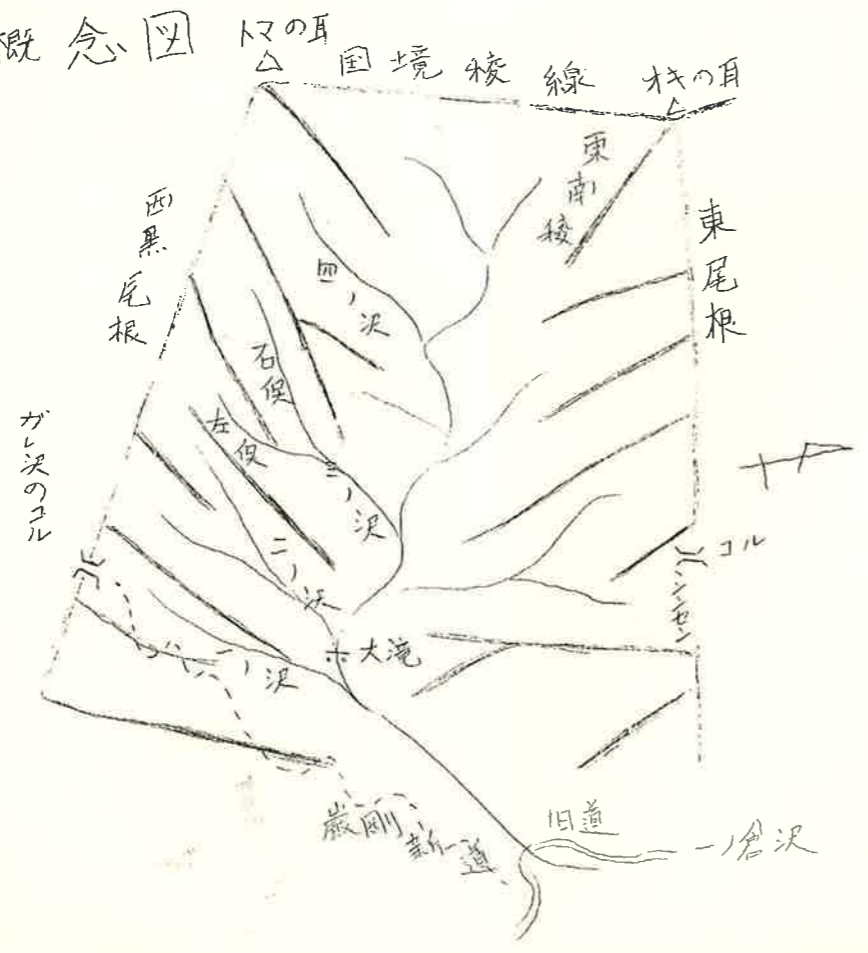 概念図
トマの耳
国境稜線
オキの耳
東南稜
東尾根
西黒尾根
四ノ沢
石俣
左俣
三ノ沢
ガレ沢のコル
二ノ沢
コル
シンセン
大滝
一ノ沢
巌剛新道
旧道
一ノ倉沢